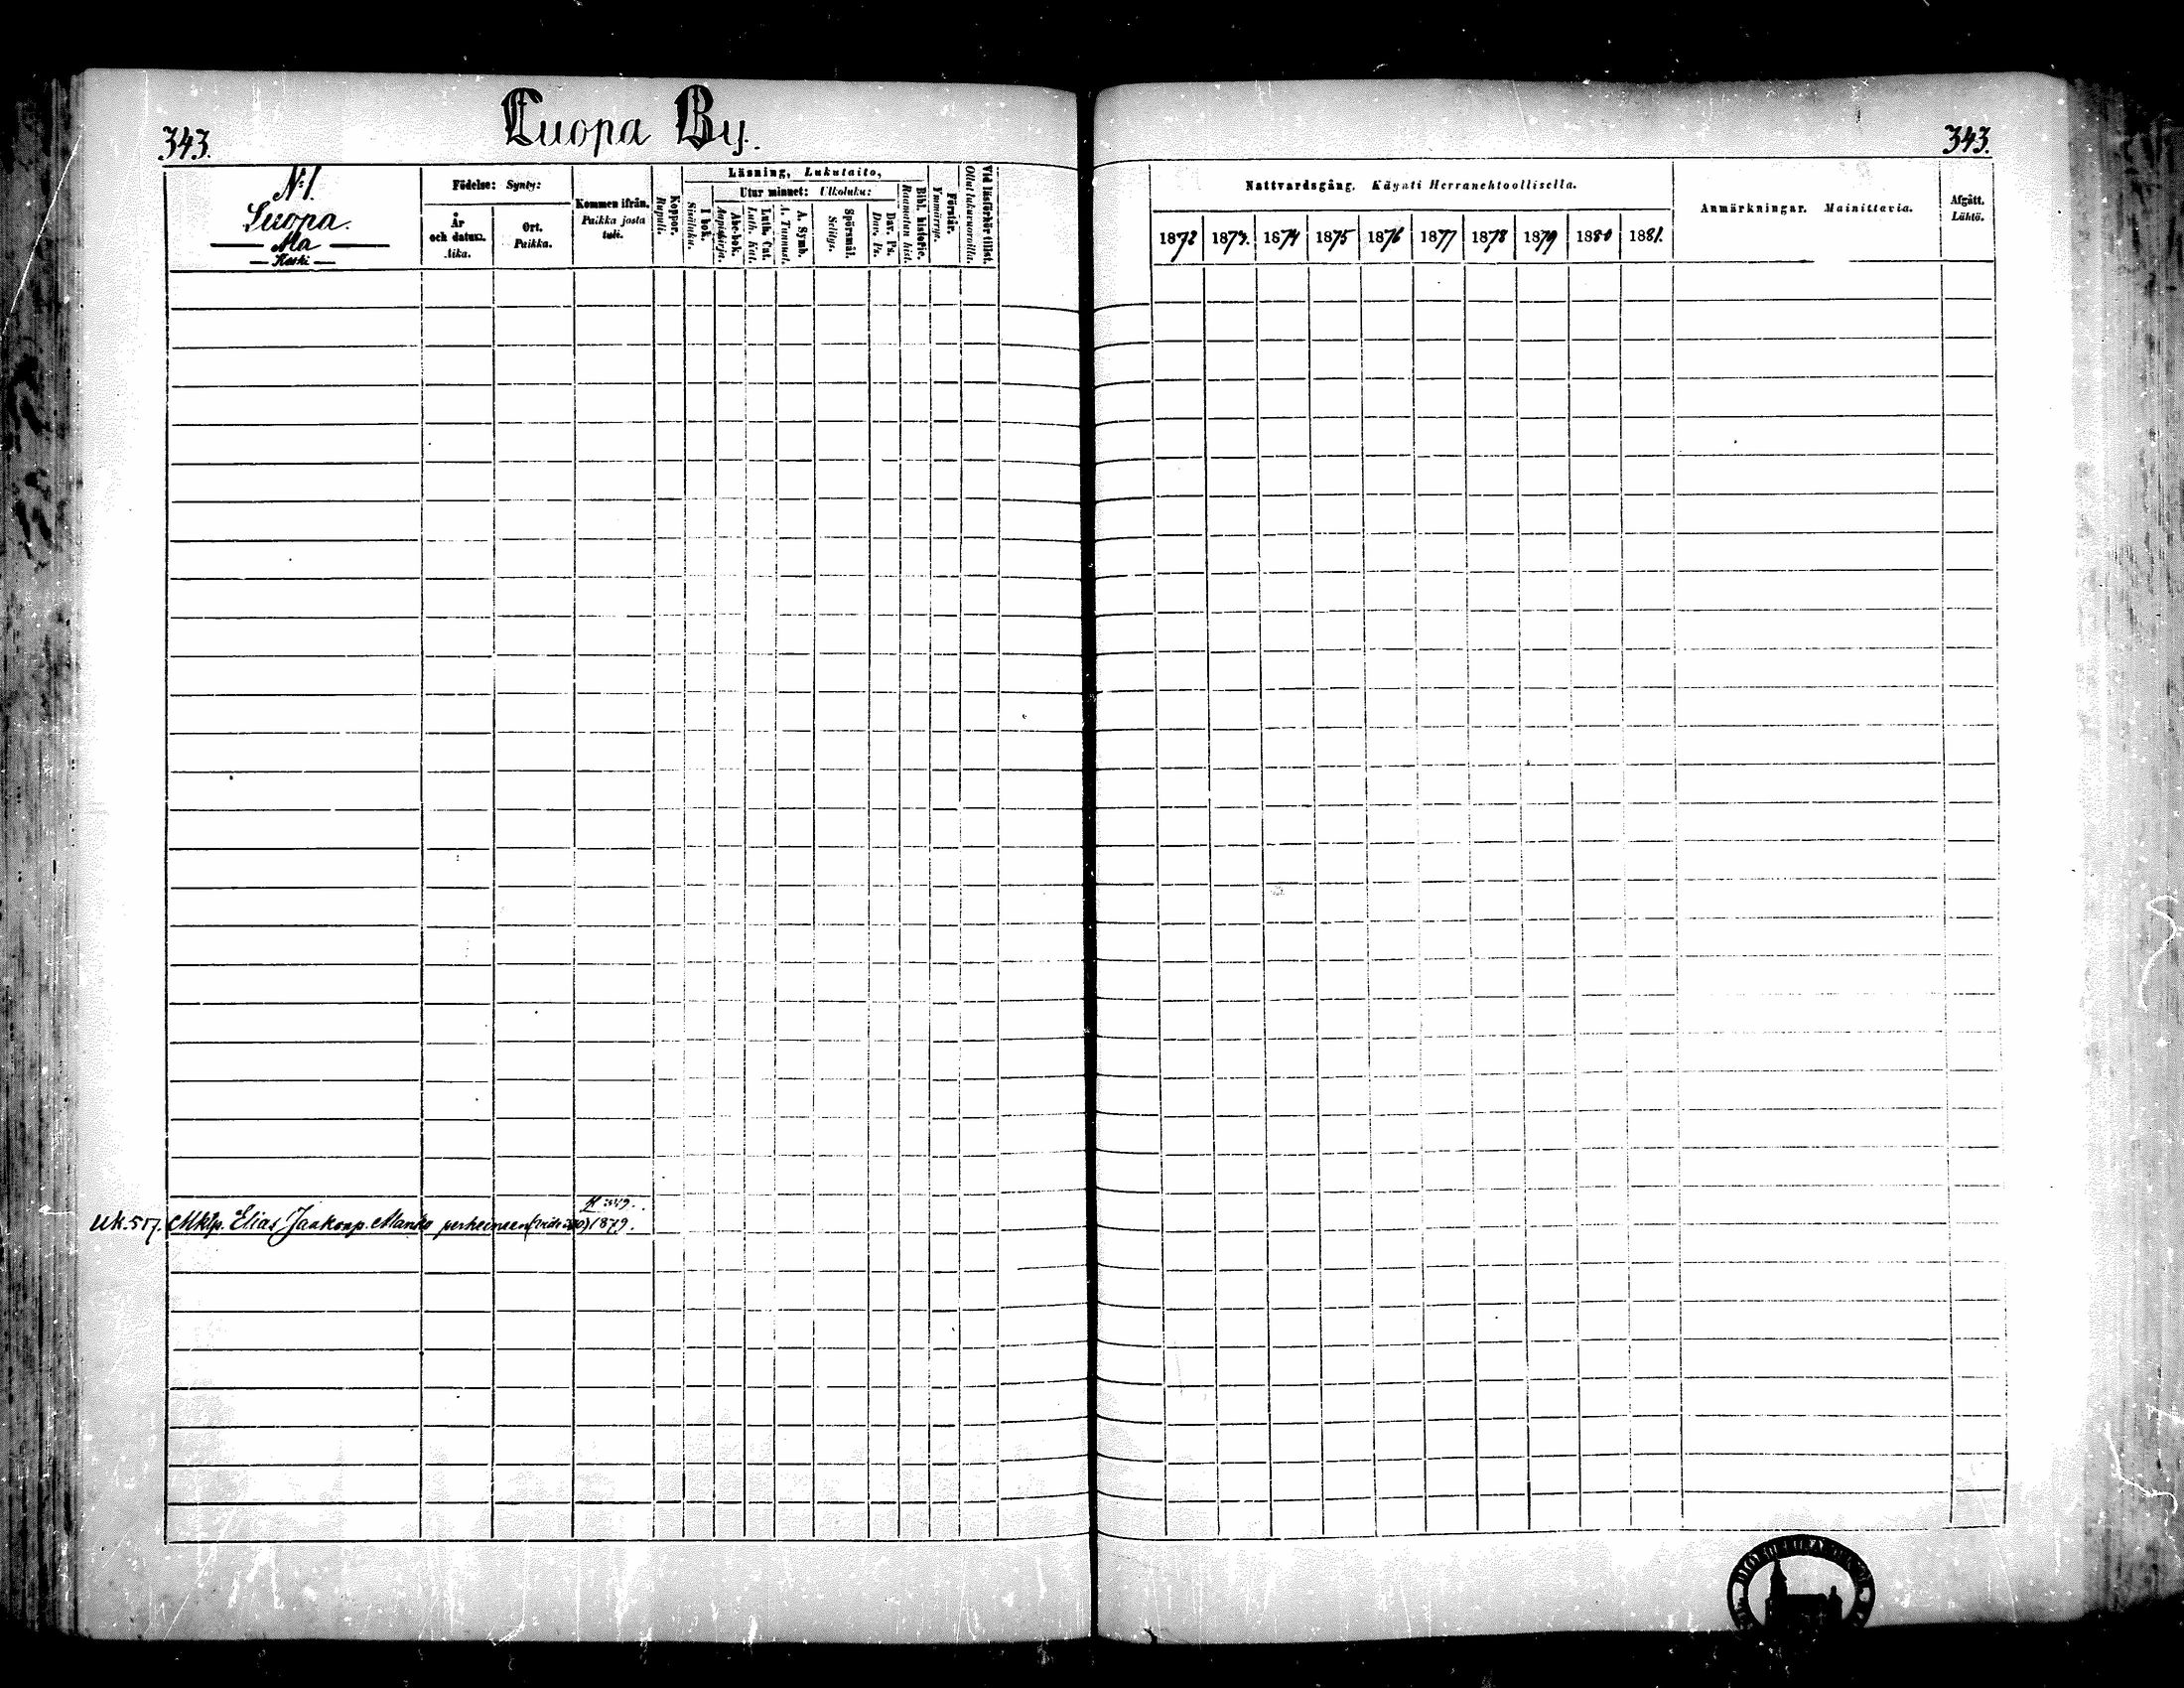 Luopa By.
343.
343.
No 1.
Luopa.
Ala
Keski
Födelse: Synty:
År och datum. Aika.
Ort. Paikka.
Kommen ifrån. Paikka josta tuli.
Koppor. Rupuli.
Läsning, Lukutaito,
I bok. Sisäluku.
Utur minnet: Ulkoluku:
Abc-bok. Aapiskirja.
Luth. Cat. Luth. Kat.
A. Symb. A. Tunnust.
Spörsmål. Selitys.
Dav. Ps. Dav. Ps.
Bibl. historie. Raamatun hist.
Förstår. Ymmärrys.
Vid läsförhör tillst. Ollut lukuvuorolla.
Nattvardsgång. Käynti Herranehtoollisella.
1872 1873. 1874 1875 1876 1877 1878 1879 1880 1881.
Anmärkningar. Mainittavia.
Afgått. Lähtö.
Uk. 517. Elias Jaakonp. perheineen 1879.